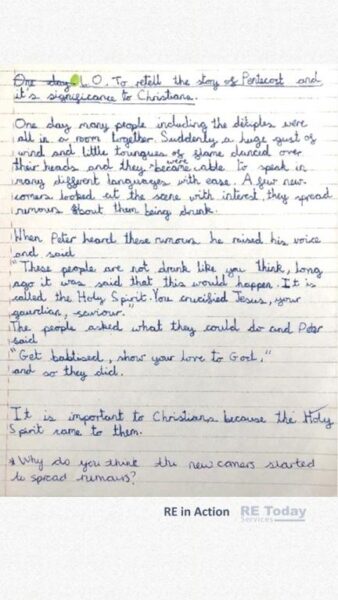 One day L.O. To retell the stoy of Pentecost and
it's significance to Christians.
One day many people including the deciples were
all in a room together. Suddenly a huge gust of
wind and little toungues of flame danced over
their heads and they became were able to speak in
many different languages with ease. A few new
comers looked at the scene with interest, they spread
rumours about them being drunk.
When Peter heard these rumours he raised his voice
and said
"These people are not drank like you think, long
ago it was said that this would happen. It is
called the Holy Spirit. You crucified Jesus, your
guardian, saviour."
The people asked what they could do and Peter
said
"Get babtised, show your love to God,"
and so they did.
It is important to Christians because the Holy
Spirit came to them.
* Why do you think the newcomers started
to spread rumours?
RE in Action RE Today
Services